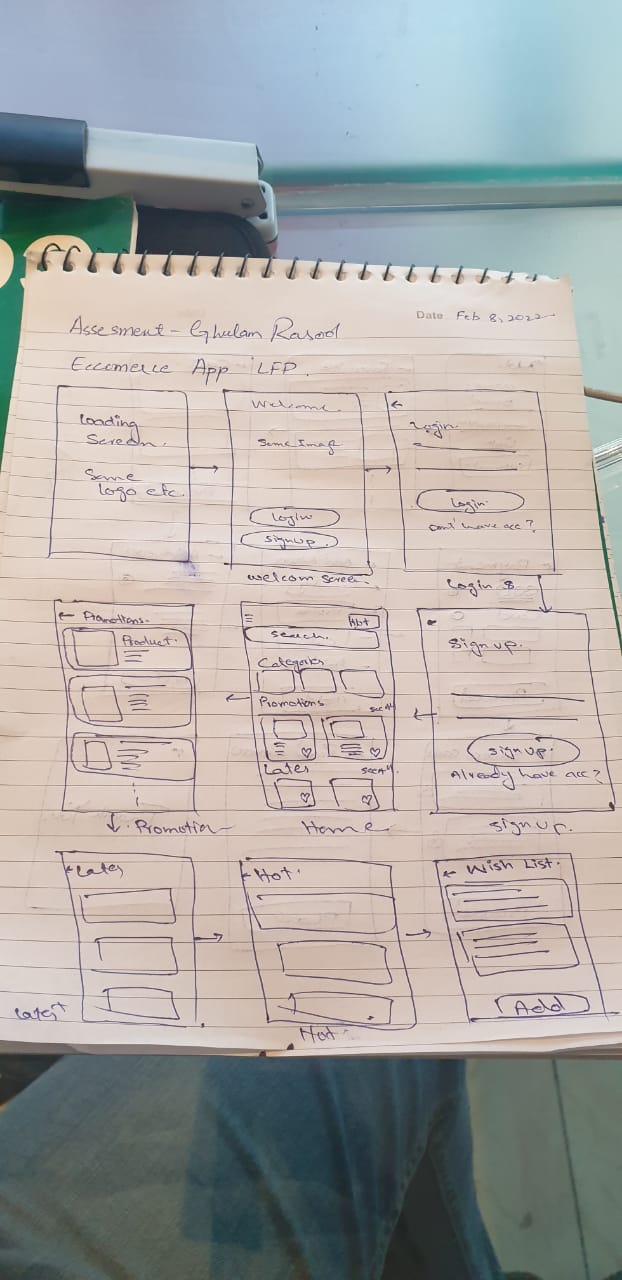 Date Feb 8, 2022
Assesment - Ghulam Rasool
Eccomerce App LFP.
Loading
Screen.
Some
logo etc.
Welcome
Some Image
Login
signup
welcom screen.
←
Login
Login
don't have acc?
Login
← Promotions.
Product.
Promotion
Hot
search.
Categories
Promotions
see All
Lates
see All
Home
sign up.
sign up.
Already have acc?
sign up.
← Lates
Latest
← Hot.
Hot.
← Wish List.
Add